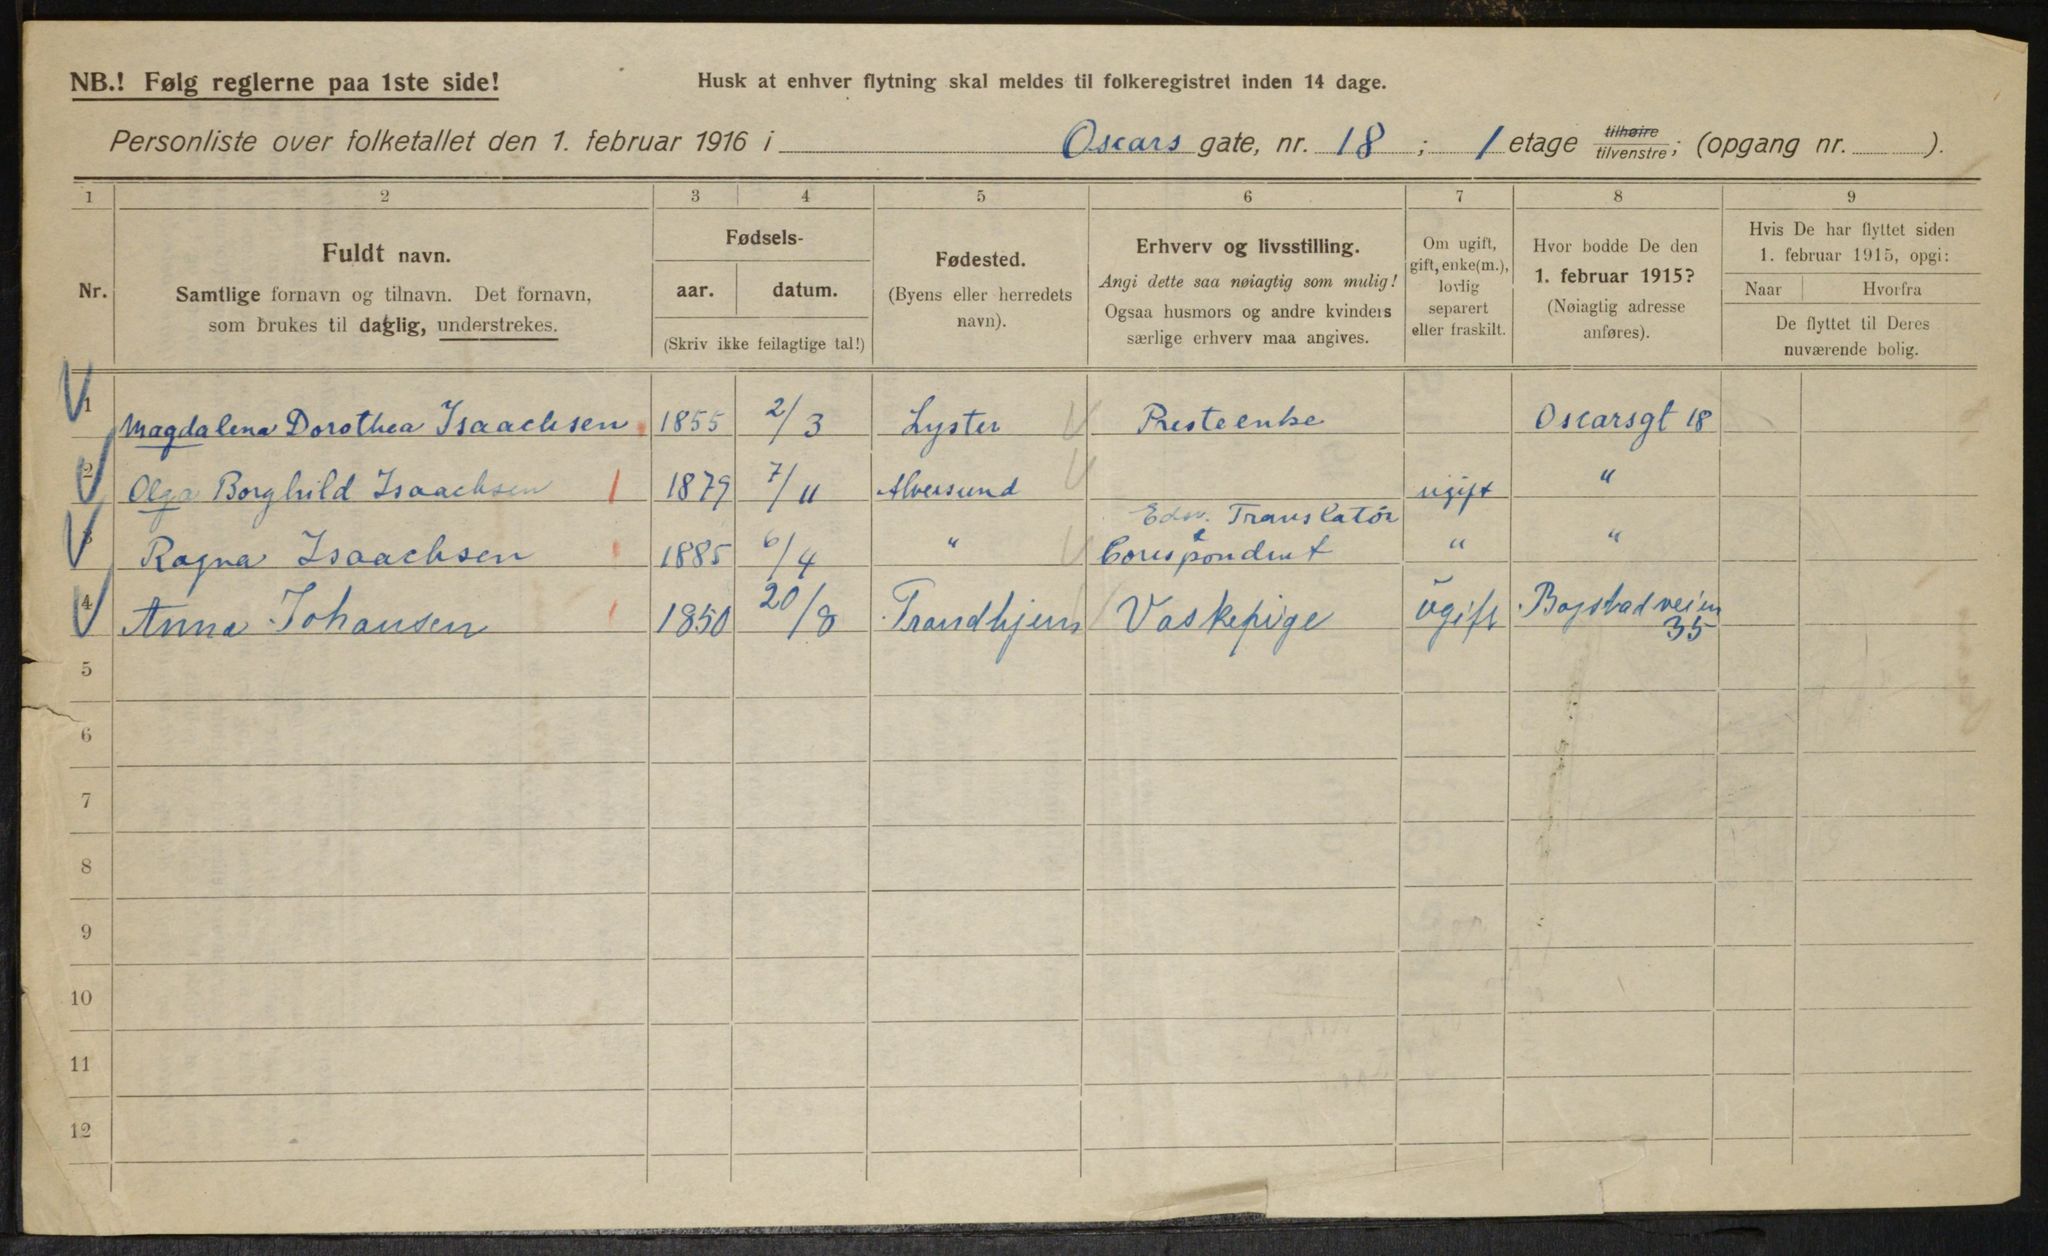 NB.! Følg reglerne paa 1ste side!
Husk at enhver flytning skal meldes til folkeregistret inden 14 dage.
Personliste over folketallet den 1. februar 1916 i Oscars gate, nr. 18 ; 1 etage tilhøire tilvenstre; (opgang nr. ).
1 2 3 4 5 6 7 8 9
Nr.
Fuldt navn.
Samtlige fornavn og tilnavn. Det fornavn,
som brukes til daglig, understrekes.
Fødsels-
aar. datum.
(Skriv ikke feilagtige tal!)
Fødested.
(Byens eller herredets
navn).
Erhverv og livsstilling.
Angi dette saa nøiagtig som mulig!
Ogsaa husmors og andre kvinders
særlige erhverv maa angives.
Om ugift,
gift, enke(m.),
lovlig
separert
eller fraskilt.
Hvor bodde De den
1. februar 1915?
(Nøiagtig adresse
anføres).
Hvis De har flyttet siden
1. februar 1915, opgi:
Naar Hvorfra
De flyttet til Deres
nuværende bolig.
1 Magdalena Dorothea Isaachsen 1855 2/3 Lyster Presteenke Oscarsgt 18
2 Olga Borghild Isaachsen 1879 7/11 Alversund ugift "
3 Ragna Isaachsen 1885 6/4 " Translatør
Corespondent " "
4 Anna Johansen 1850 20/8 Trondhjem Vaskepige Ugift Bogstadveien
35
5
6
7
8
9
10
11
12